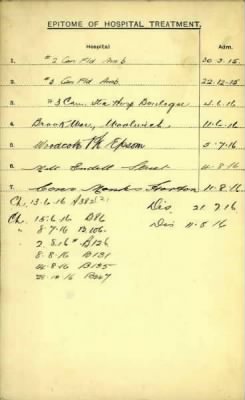 EPITOME OF HOSPITAL TREATMENT.
Hospital Adm.
1. #2 Can Fld Amb 30-3-15.
2. #3 Can Fld Amb. 22-12-15
3. #3 Can. Sta Hosp Boulogne 4.6.16
4. Brook War, Woolwich 11.6.16
5. Woodcote Pk Epsom 5.7.16
6. Mil Endell Street 4.8.16
7. Conv Monks Horton 11.8.16
Ch. 13.6.16 A3825 Dis. 21.7.16
Ch. 15.6.16 B86 Dis 11.8.16
" 8.7.16 B106.
2.8.16 B126
8.8.16 B131
14.8.16 B135